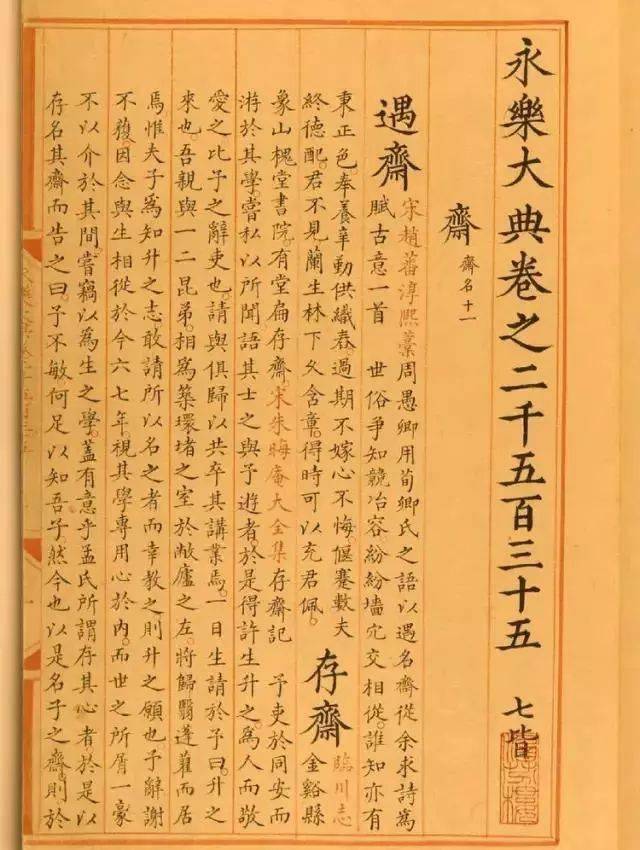 永樂大典卷之二千五百三十五 七皆
齋 齋名十一
遇齋
宋趙蕃淳熙藁周愚卿用荀卿氏之語以遇名齋從余求詩爲
賦古意一首 世俗爭知競冶容紛紛墻宂交相從誰知亦有
秉正色奉養辛勤供織舂過期不嫁心不悔偃蹇數夫
終德配君不見蘭生林下久含章得時可以充君佩
存齋
臨川志
金谿縣
象山槐堂書院有堂扁存齋宋朱晦庵大全集存齋記 予吏於同安而
游於其學嘗私以所聞語其士之與予遊者於是得許生升之爲人而敬
愛之比予之辭吏也請與俱歸以共卒其講業焉一日生請於予曰升之
來也吾親與一二昆弟相爲築環堵之室於敝廬之左將歸翳蓬藋而居
焉惟夫子爲知升之志敢請所以名之者而幸教之則升之願也予辭謝
不獲因念與生相從於今六七年視其學專用心於內而世之所屑一豪
不以介於其間嘗竊以爲生之學蓋有意乎孟氏所謂存其心者於是以
存名其齋而告之曰予不敏何足以知吾子然今也以是名子之齋則於